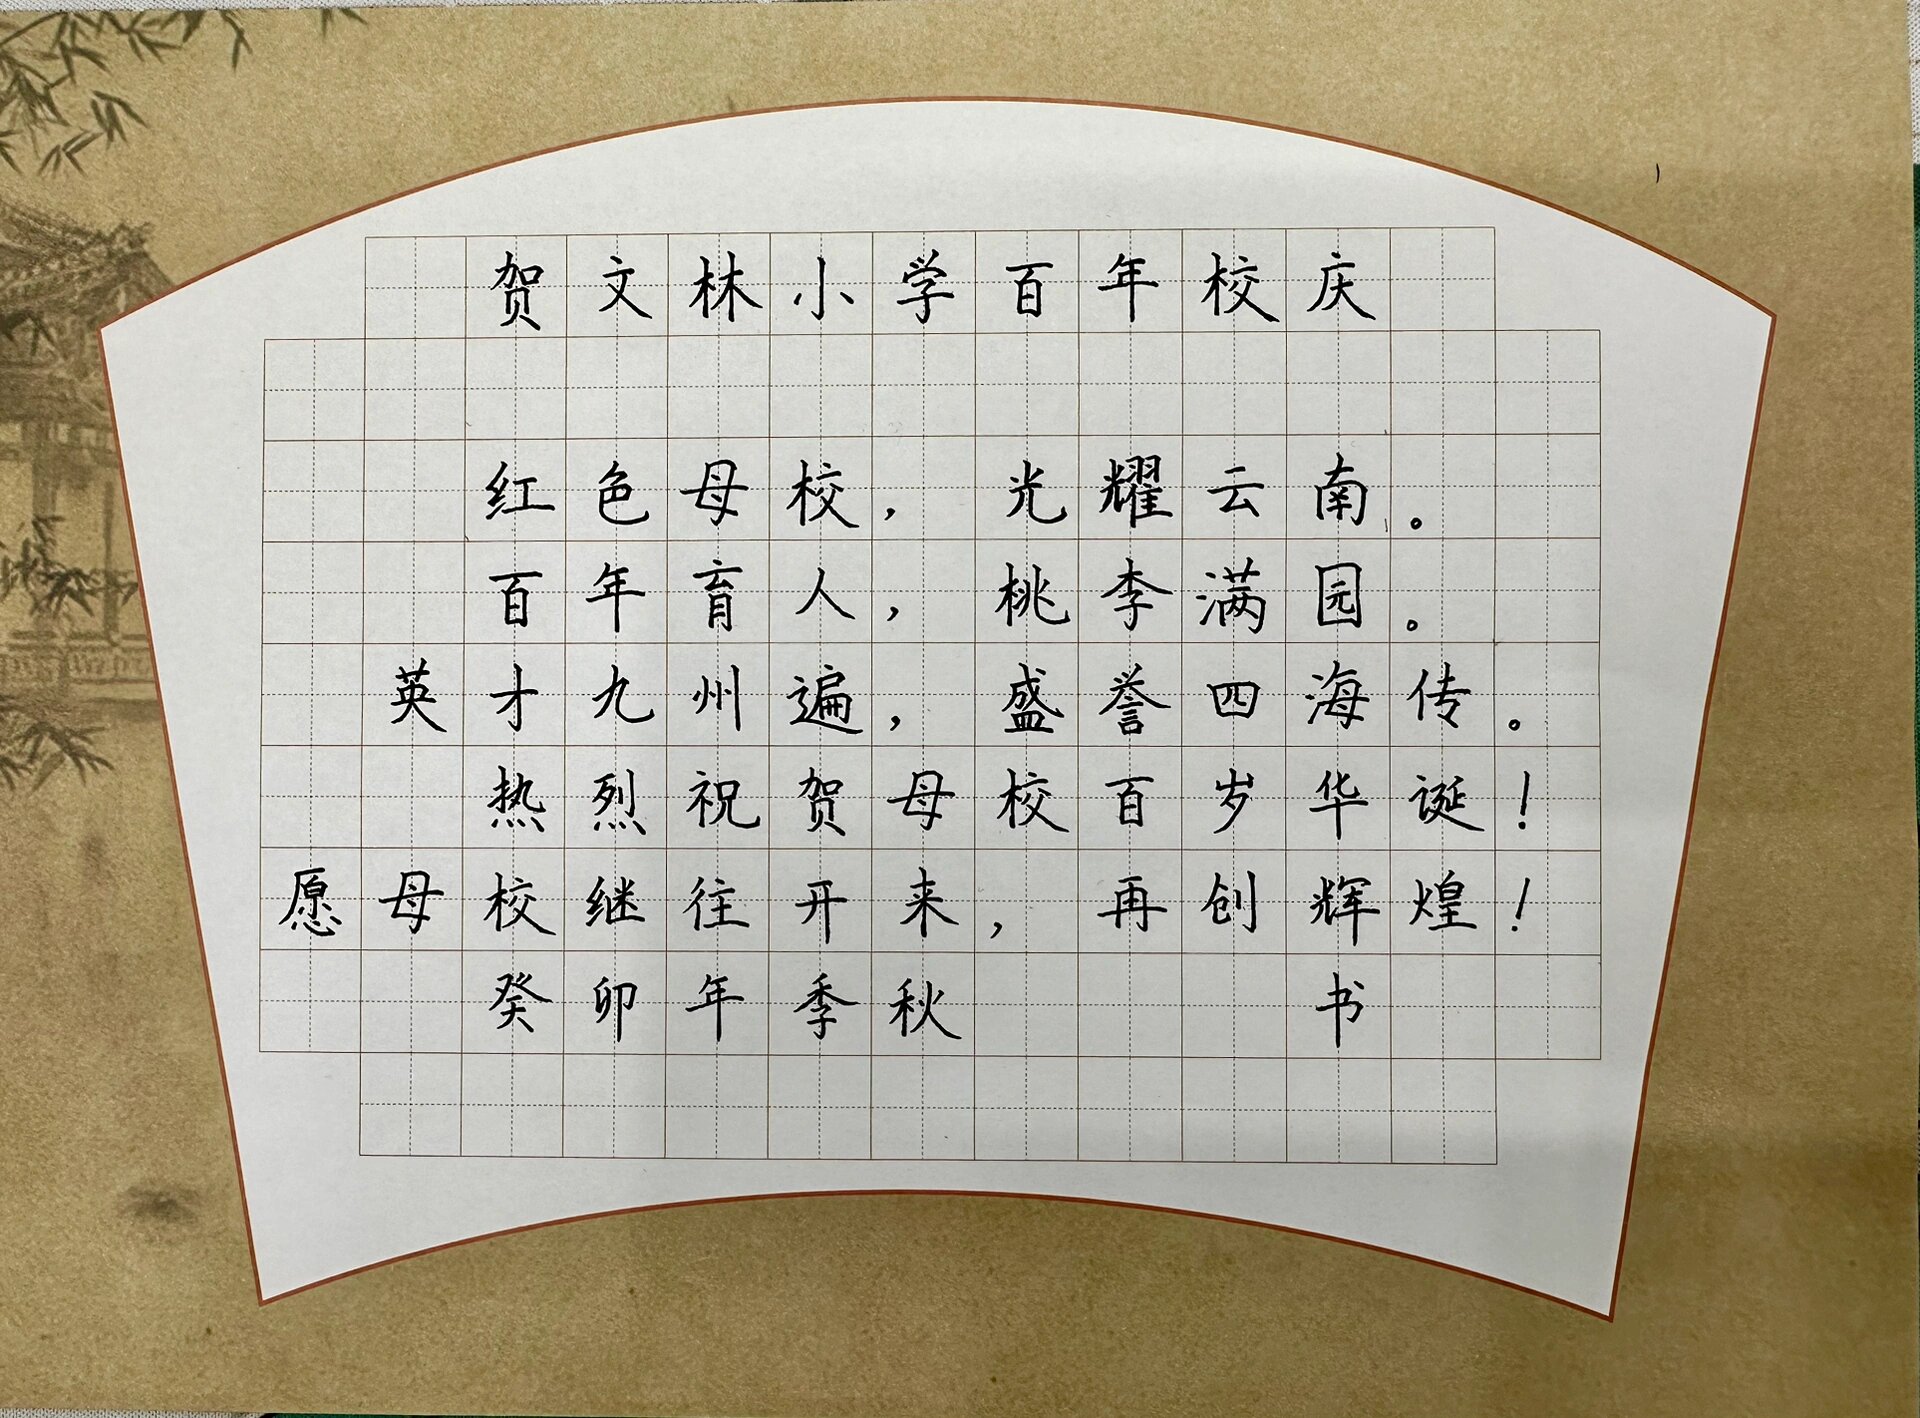 贺文林小学百年校庆
红色母校，光耀云南。
百年育人，桃李满园。
英才九州遍，盛誉四海传。
热烈祝贺母校百岁华诞！
愿母校继往开来，再创辉煌！
癸卯年季秋 书